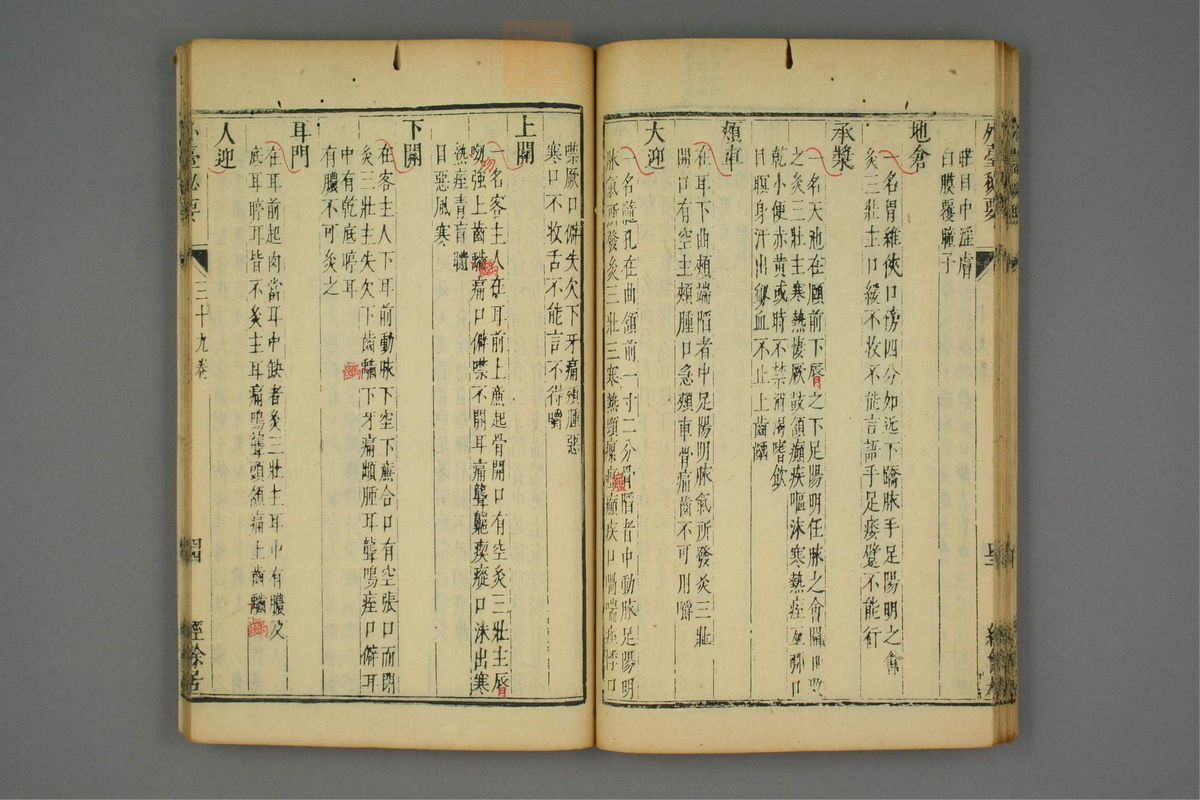 外臺秘要
眶目中淫膚
白膜覆瞳子
地倉
一名胃維俠口傍四分如近下蹻脉手足陽明之會
灸三壯主口緩不收不能言語手足痿躄不能行
承漿
一名天池在頤前下唇之下足陽明任脉之會開口取
之灸三壯主寒熱悽厥鼓頷癲疾嘔沫寒熱痓互引口
乾小便赤黃或時不禁消渴嗜飲
目瞑身汗出衂血不止上齒齲
頰車
在耳下曲頰端陷者中足陽明脉氣所發灸三壯
開口有空主頰腫口急頰車骨痛齒不可用嚼
大迎
一名髓孔在曲頷前一寸二分骨陷者中動脉足陽明
脉氣所發灸三壯主寒熱頸瘰癧癲疾口喎喘痓悸口
噤厥口僻失欠下牙痛頰腫惡
寒口不收舌不能言不得嚼
上關
一名客主人在耳前上廉起骨開口有空灸三壯主唇
吻強上齒齲痛口僻噤不開耳痛聾瘈瘲口沫出寒
熱痓青盲䁾
目惡風寒
下關
在客主人下耳前動脉下空下廉合口有空張口而閉
灸三壯主失欠下齒齲下牙痛䪼腫耳聾鳴痓口僻耳
中有乾底聤耳
有膿不可灸之
耳門
在耳前起肉當耳中缺者灸三壯主耳中有膿及
底耳聤耳皆不灸主耳痛鳴聾頭頷痛上齒齲
人迎
外臺秘要
三十九卷
四
經餘居